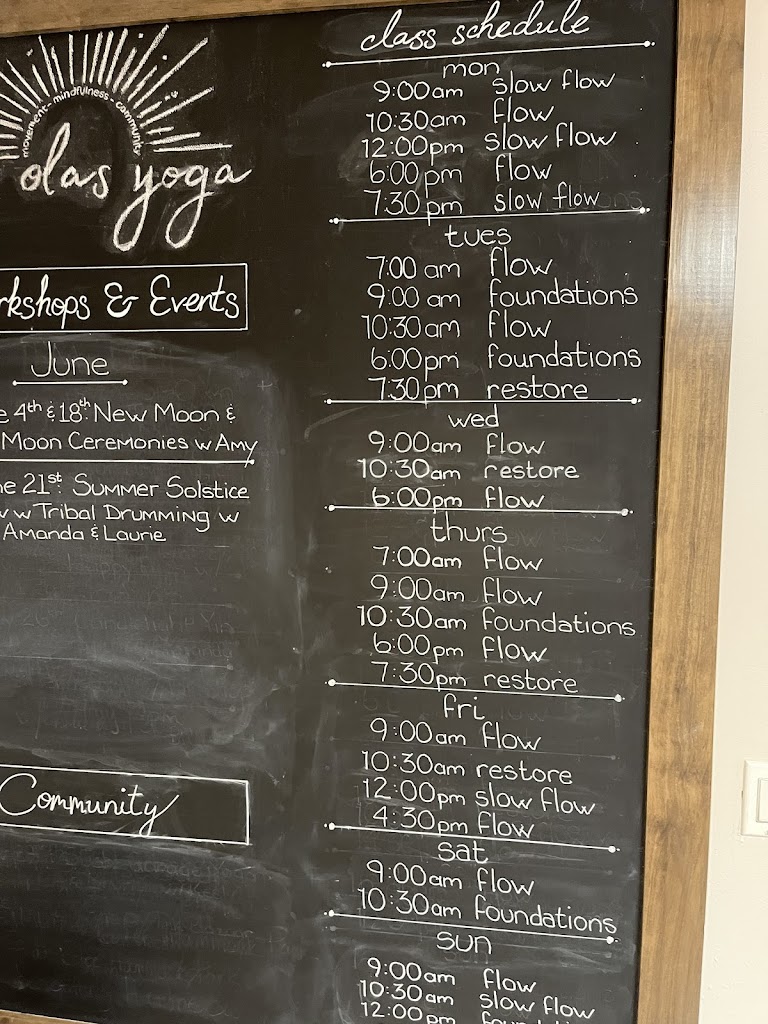 movement - mindfulness - community
olas yoga
rkshops & Events
June
e 4th & 18th: New Moon &
Moon Ceremonies w Amy
e 21st: Summer Solstice
w w Tribal Drumming w
Amanda & Laurie
Community
class schedule
mon
9:00am slow flow
10:30am flow
12:00pm slow flow
6:00pm flow
7:30pm slow flow
tues
7:00am flow
9:00am foundations
10:30am flow
6:00pm foundations
7:30pm restore
wed
9:00am flow
10:30am restore
6:00pm flow
thurs
7:00am flow
9:00am flow
10:30am foundations
6:00pm flow
7:30pm restore
fri
9:00am flow
10:30am restore
12:00pm slow flow
4:30pm flow
sat
9:00am flow
10:30am foundations
sun
9:00am flow
10:30am slow flow
12:00pm